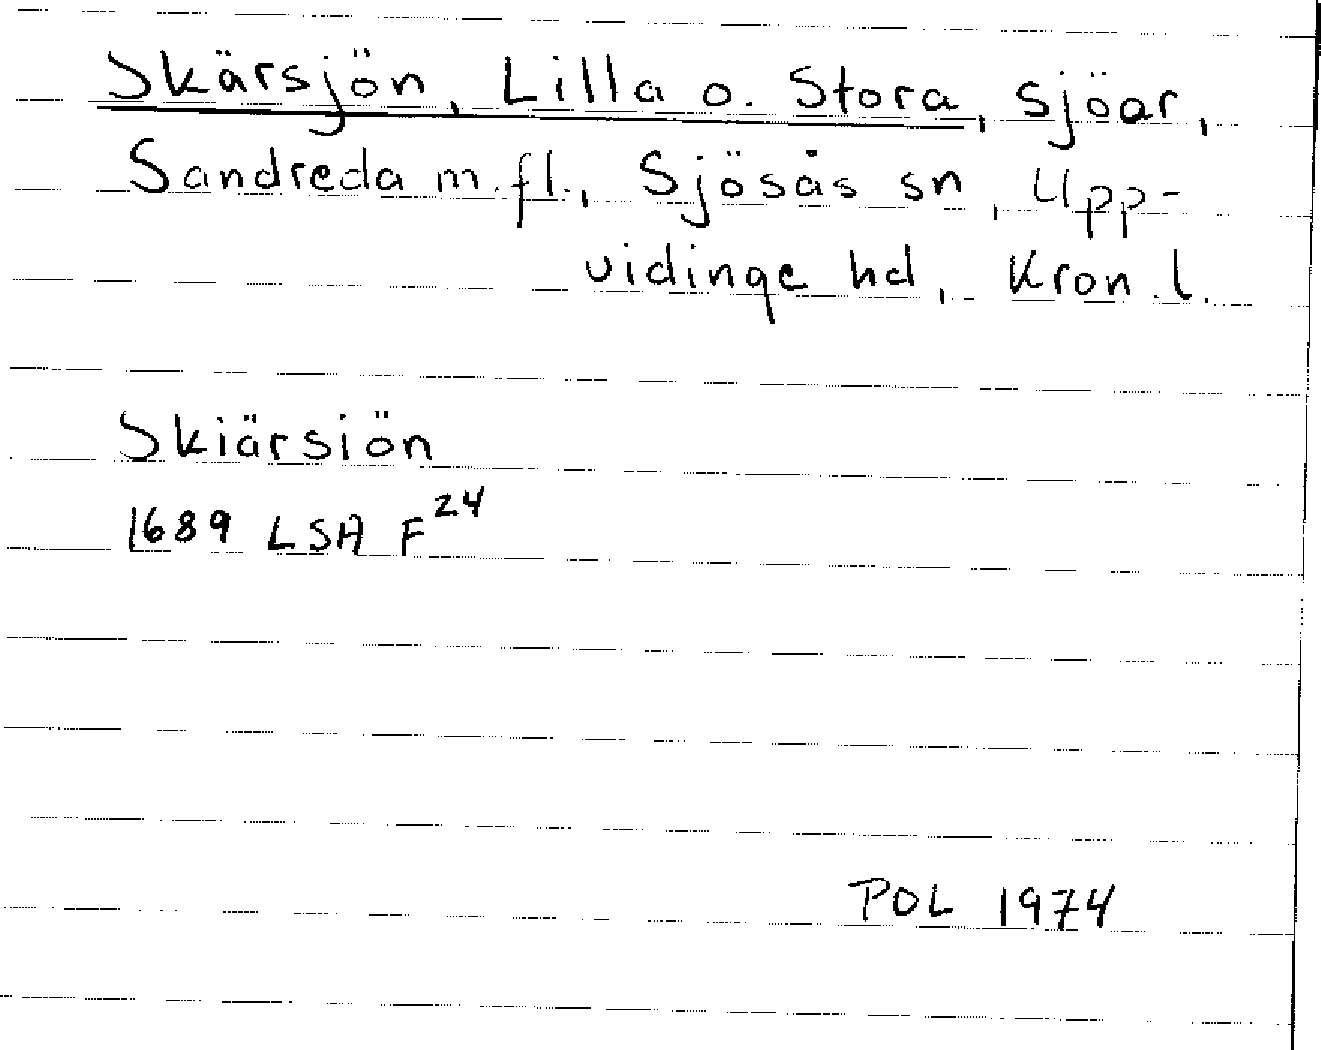 Skärsjön, Lilla o. Stora, sjöar,
Sandreda m.fl., Sjösås sn, Upp-
vidinge hd, Kron.l.
Skiärsiön
1689 LSA F²⁴
POL 1974